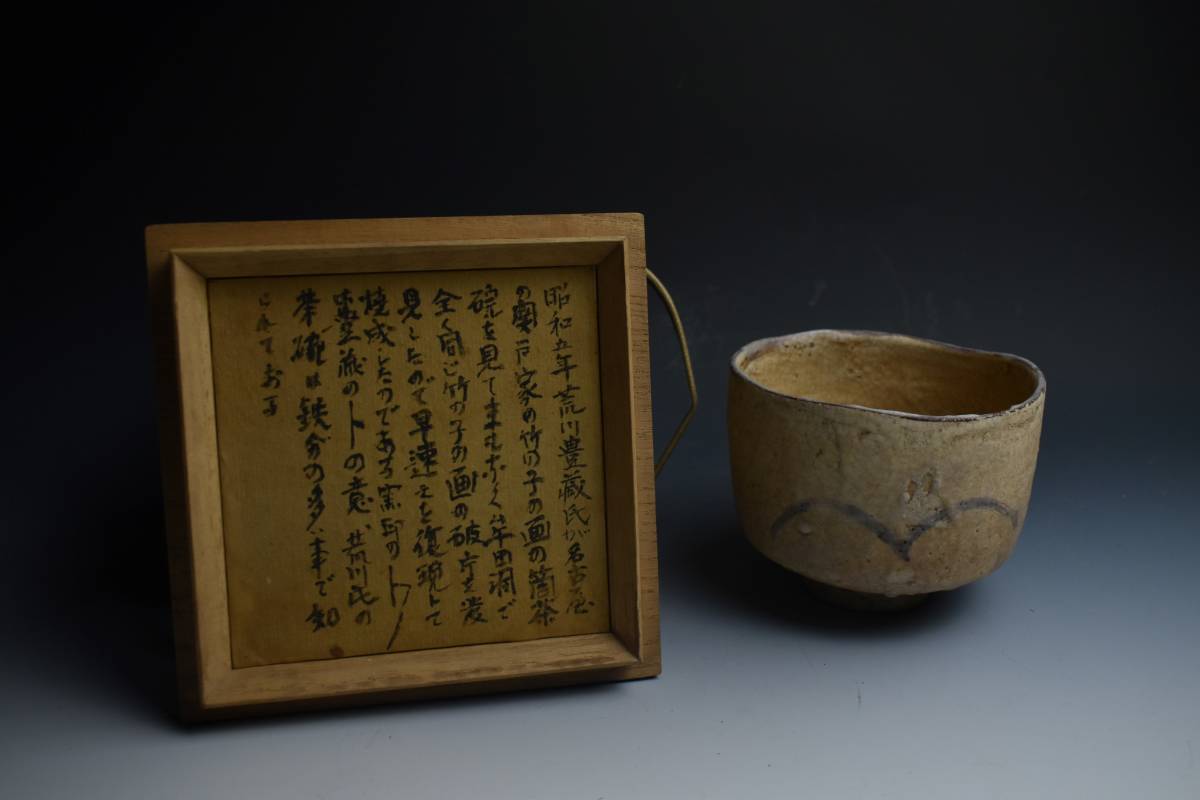 昭和五年荒川豊蔵氏が名古屋
の関戸家の竹の子の画の筒茶
碗を見て来もなく牟田洞で
全く同じ竹の子の画の破片を発
見したので早速之を復現して
焼成したのである窯印のト
豊蔵のトの意荒川氏の
茶碗は鉄分の多い事で知
られてお